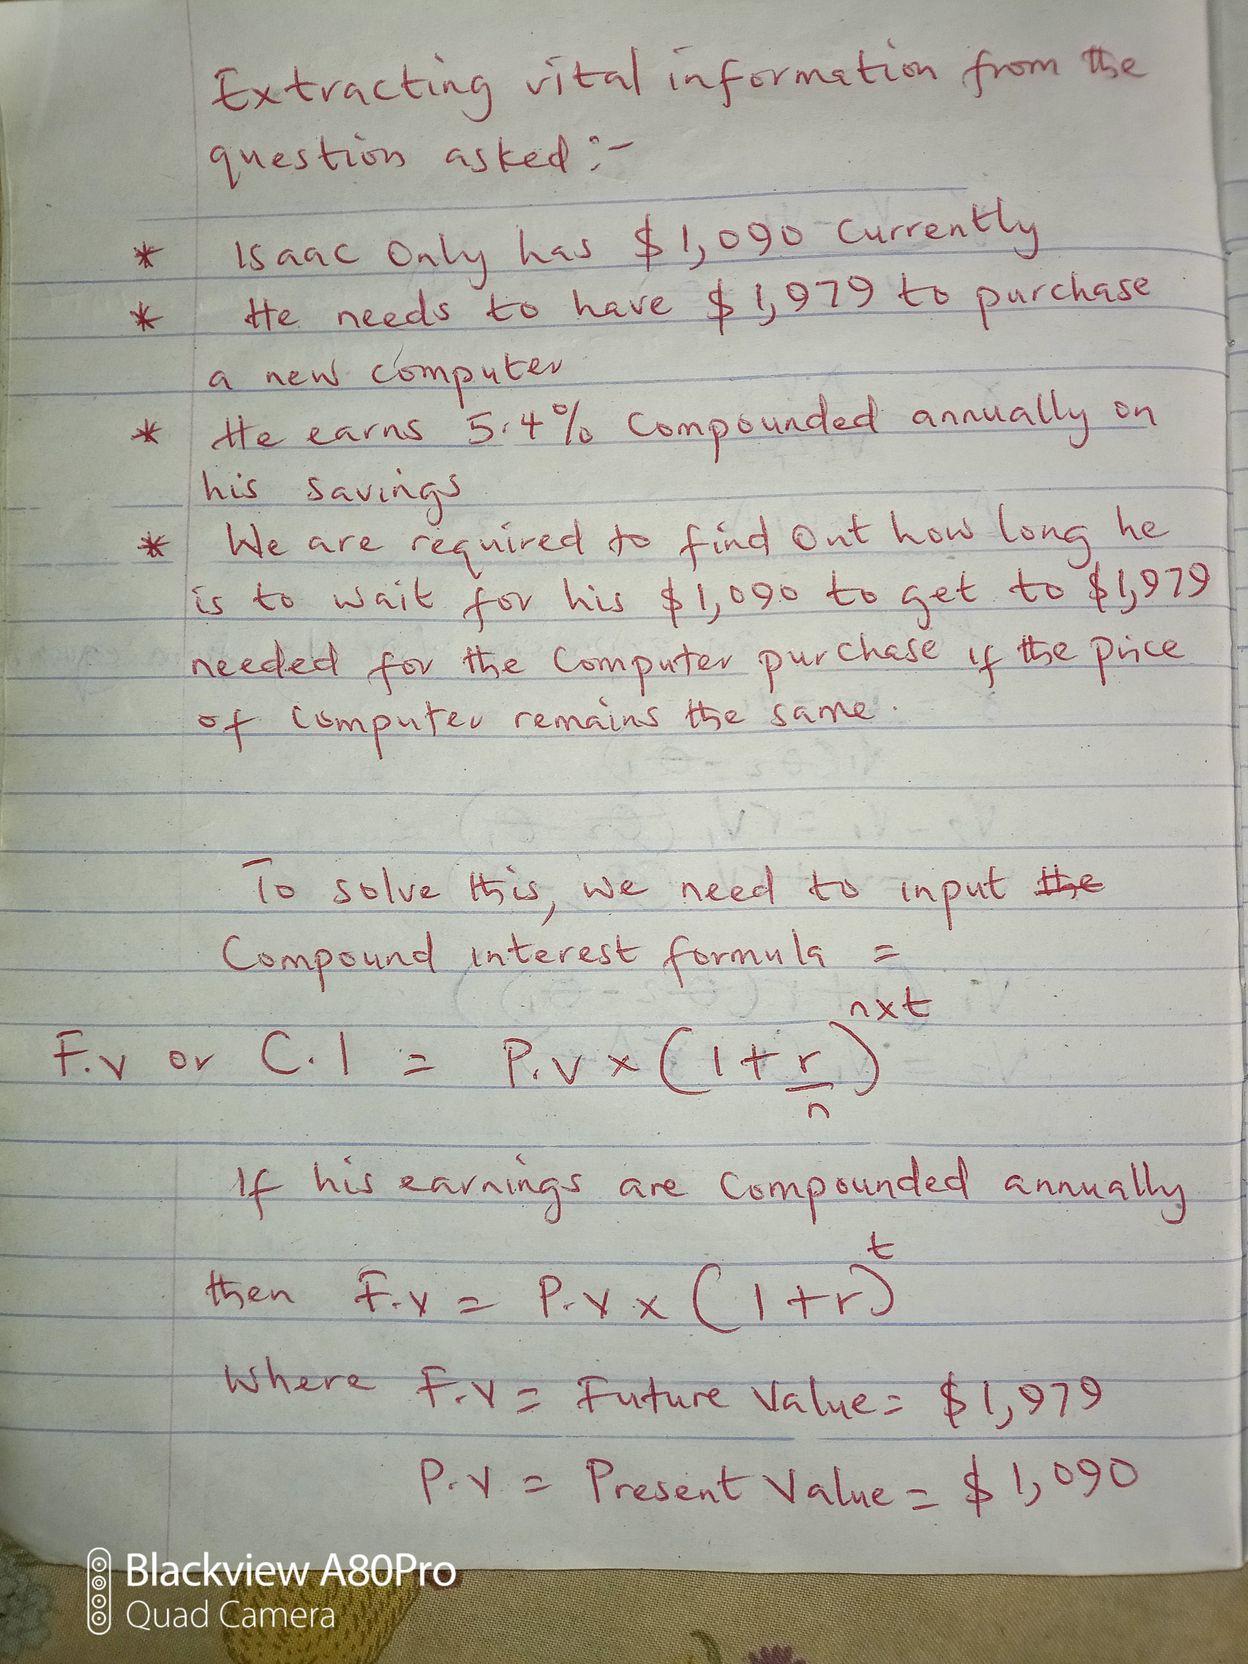 Extracting vital information from the
question asked :-
* Isaac Only has $1,090 Currently
* He needs to have $1,979 to purchase
a new computer
* He earns 5.4% Compounded annually on
his savings
* We are required to find out how long he
is to wait for his $1,090 to get to $1,979
needed for the Computer purchase if the price
of computer remains the same.
To solve this, we need to input the
Compound interest formula =
F.V or C.I = P.V x (1 + r/n)^nxt
If his earnings are Compounded annually
then F.V = P.V x (1 + r)^t
Where F.V = Future Value = $1,979
P.V = Present Value = $1,090
Blackview A80Pro
Quad Camera